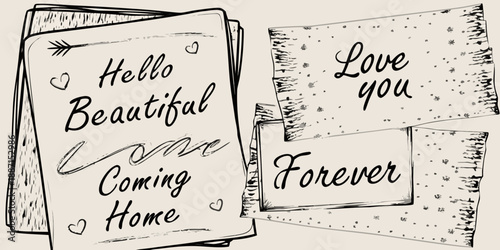 Hello
Beautiful
Coming
Home
Love
you
Forever